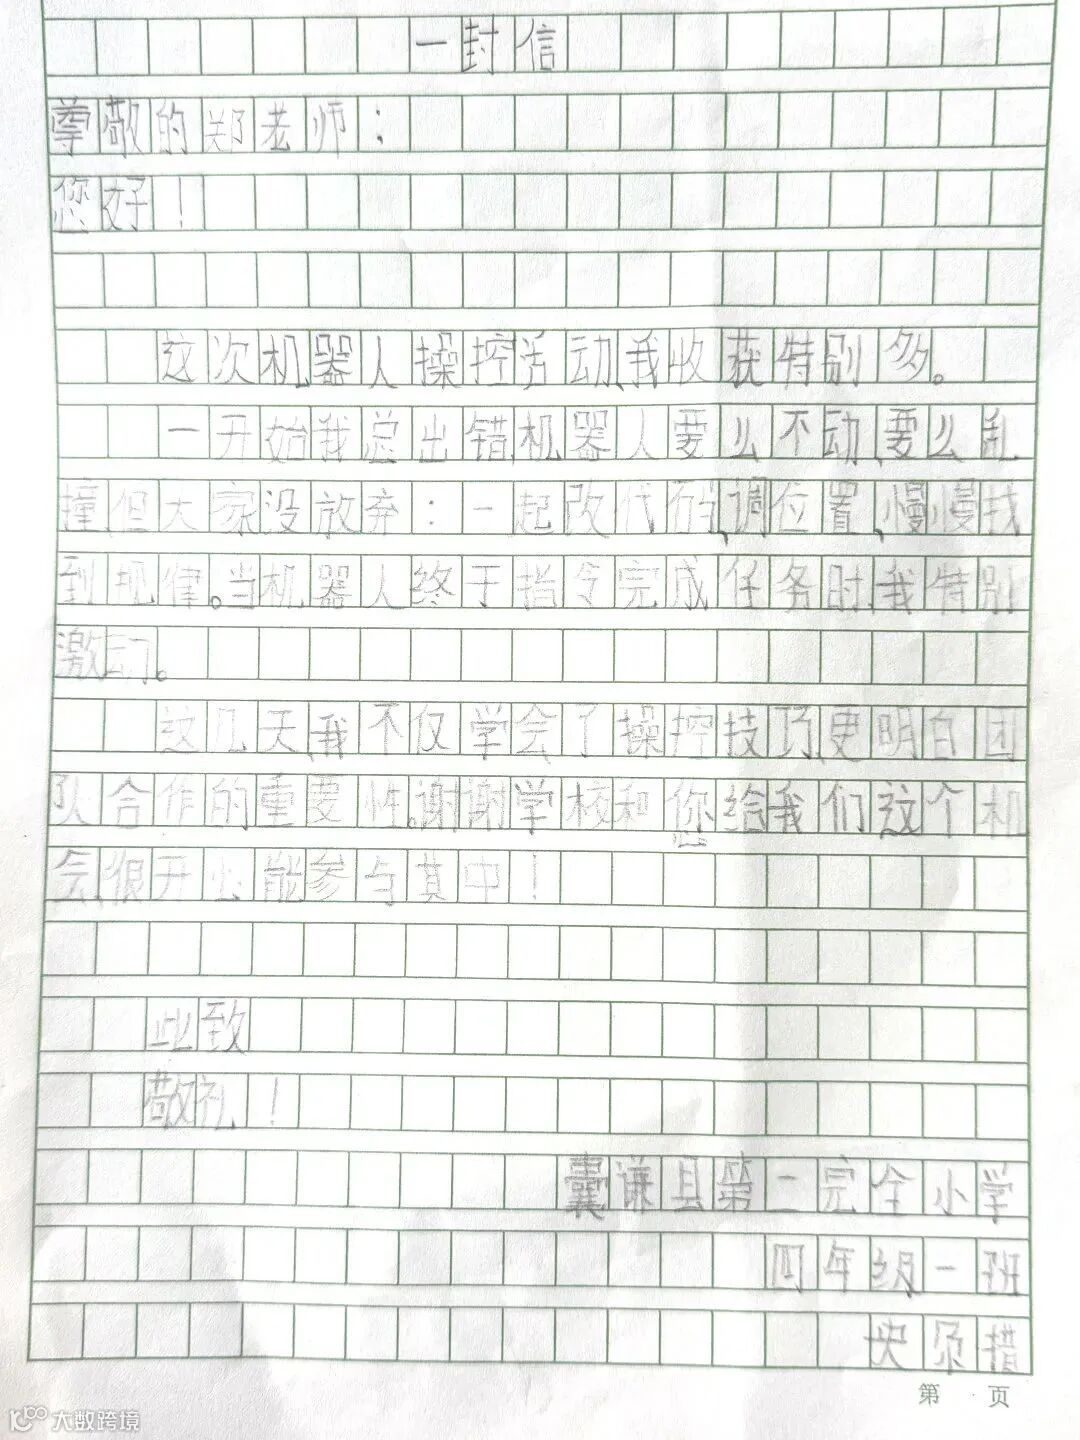 一封信
尊敬的郑老师：
您好！
这次机器人操控活动,我收获特别多。
一开始我总出错,机器人要么不动,要么乱
撞,但大家没放弃：一起改代码,调位置,慢慢找
到规律。当机器人终于指令完成任务时,我特别
激动。
这几天,我不仅学会了操控技巧,更明白团
队合作的重要性,谢谢学校和您给我们这个机
会,很开心能参与其中！
此致
敬礼！
囊谦县第二完全小学
四年级一班
央尕措
第 页
大数跨境